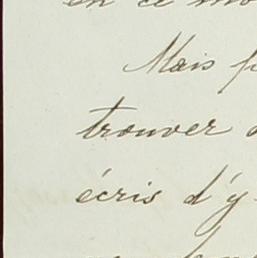 en ce mo
Mais
trouver
écris d'y